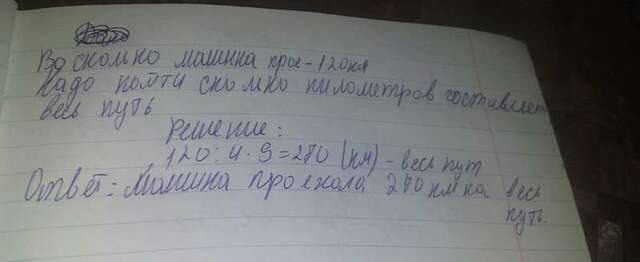 Во сколько машина прое-120км
Надо найти сколько километров составляет
весь путь
Решение:
120:4·9=270 (км) - весь пут
Ответ: Машина проехола 270 км на весь
путь.